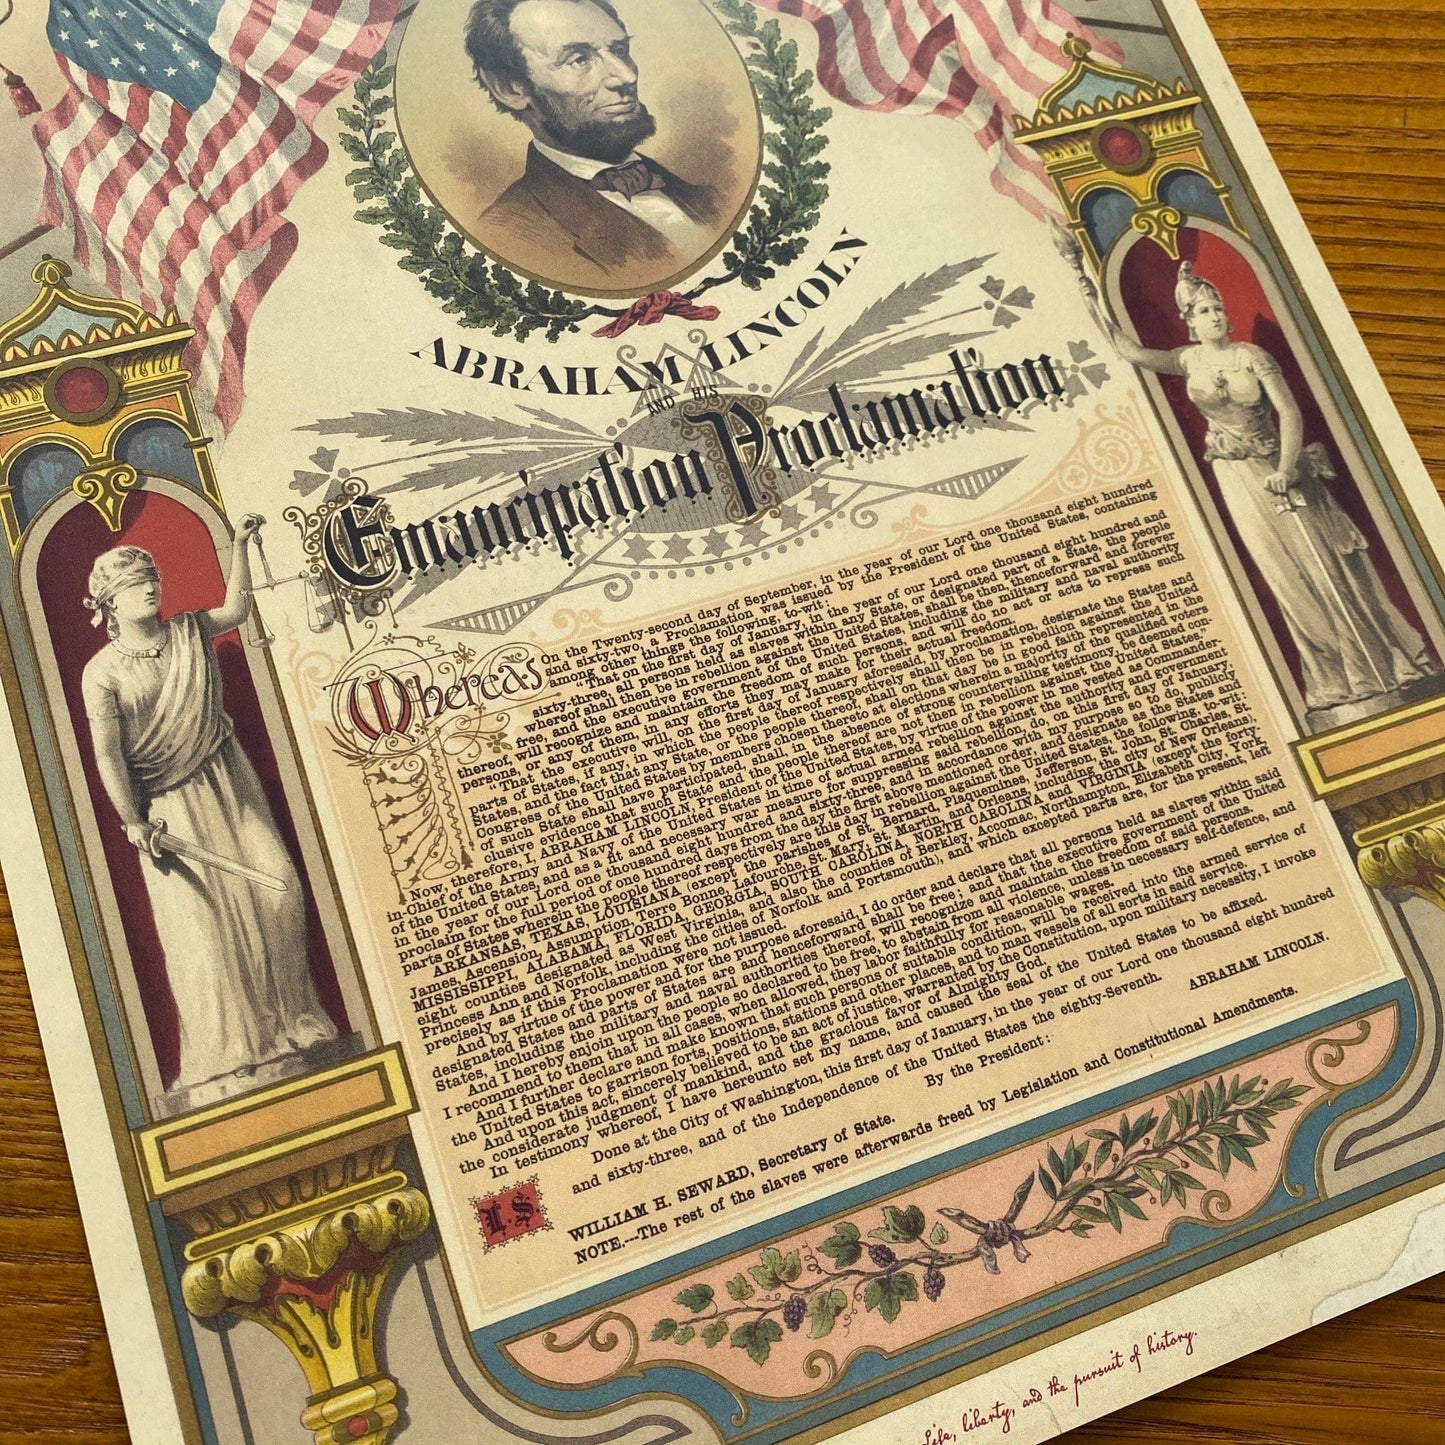 ABRAHAM LINCOLN
AND HIS
Emancipation Proclamation
Whereas
On the Twenty-second day of September, in the year of our Lord one thousand eight hundred
and sixty-two, a Proclamation was issued by the President of the United States, containing
among other things the following, to-wit:
"That on the first day of January, in the year of our Lord one thousand eight hundred and
sixty-three, all persons held as slaves within any State, or designated part of a State, the people
whereof shall then be in rebellion against the United States, shall be then, thenceforward and forever
free, and the executive government of the United States, including the military and naval authority
thereof, will recognize and maintain the freedom of such persons, and will do no act or acts to repress such
persons, or any of them, in any efforts they may make for their actual freedom.
"That the executive will, on the first day of January aforesaid, by proclamation, designate the States and
parts of States, if any, in which the people thereof respectively shall then be in rebellion against the United
States, and the fact that any State, or the people thereof, shall on that day be in good faith represented in the
Congress of the United States by members chosen thereto at elections wherein a majority of the qualified voters
of such State shall have participated, shall, in the absence of strong countervailing testimony, be deemed con-
clusive evidence that such State and the people thereof are not then in rebellion against the United States."
Now, therefore, I, ABRAHAM LINCOLN, President of the United States, by virtue of the power in me vested as Commander-
in-Chief of the Army and Navy of the United States in time of actual armed rebellion against the authority and government
of the United States, and as a fit and necessary war measure for suppressing said rebellion, do, on this first day of January,
in the year of our Lord one thousand eight hundred and sixty-three, and in accordance with my purpose so to do, publicly
proclaim for the full period of one hundred days from the day the first above mentioned order, and designate as the States and
parts of States wherein the people thereof respectively are this day in rebellion against the United States, the following, to-wit:
ARKANSAS, TEXAS, LOUISIANA (except the parishes of St. Bernard, Plaquemines, Jefferson, St. John, St. Charles, St.
James, Ascension, Assumption, Terre Bonne, Lafourche, St. Mary, St. Martin, and Orleans, including the city of New Orleans),
MISSISSIPPI, ALABAMA, FLORIDA, GEORGIA, SOUTH CAROLINA, NORTH CAROLINA AND VIRGINIA (except the forty-
eight counties designated as West Virginia, and also the counties of Berkley, Accomac, Northampton, Elizabeth City, York,
Princess Ann and Norfolk, including the cities of Norfolk and Portsmouth), and which excepted parts are, for the present, left
precisely as if this Proclamation were not issued.
And by virtue of the power and for the purpose aforesaid, I do order and declare that all persons held as slaves within said
designated States and parts of States are and henceforward shall be free; and that the executive government of the United
States, including the military and naval authorities thereof, will recognize and maintain the freedom of said persons.
And I hereby enjoin upon the people so declared to be free, to abstain from all violence, unless in necessary self-defence, and
I recommend to them that in all cases, when allowed, they labor faithfully for reasonable wages.
And I further declare and make known that such persons of suitable condition, will be received into the armed service of
the United States to garrison forts, positions, stations and other places, and to man vessels of all sorts in said service.
And upon this act, sincerely believed to be an act of justice, warranted by the Constitution, upon military necessity, I invoke
the considerate judgment of mankind, and the gracious favor of Almighty God.
In testimony whereof, I have hereunto set my name, and caused the seal of the United States to be affixed.
Done at the City of Washington, this first day of January, in the year of our Lord one thousand eight hundred
and sixty-three, and of the Independence of the United States the eighty-Seventh.
By the President:
ABRAHAM LINCOLN.
L.S.
WILLIAM H. SEWARD, Secretary of State.
NOTE.---The rest of the slaves were afterwards freed by Legislation and Constitutional Amendments.
Life, liberty, and the pursuit of history.